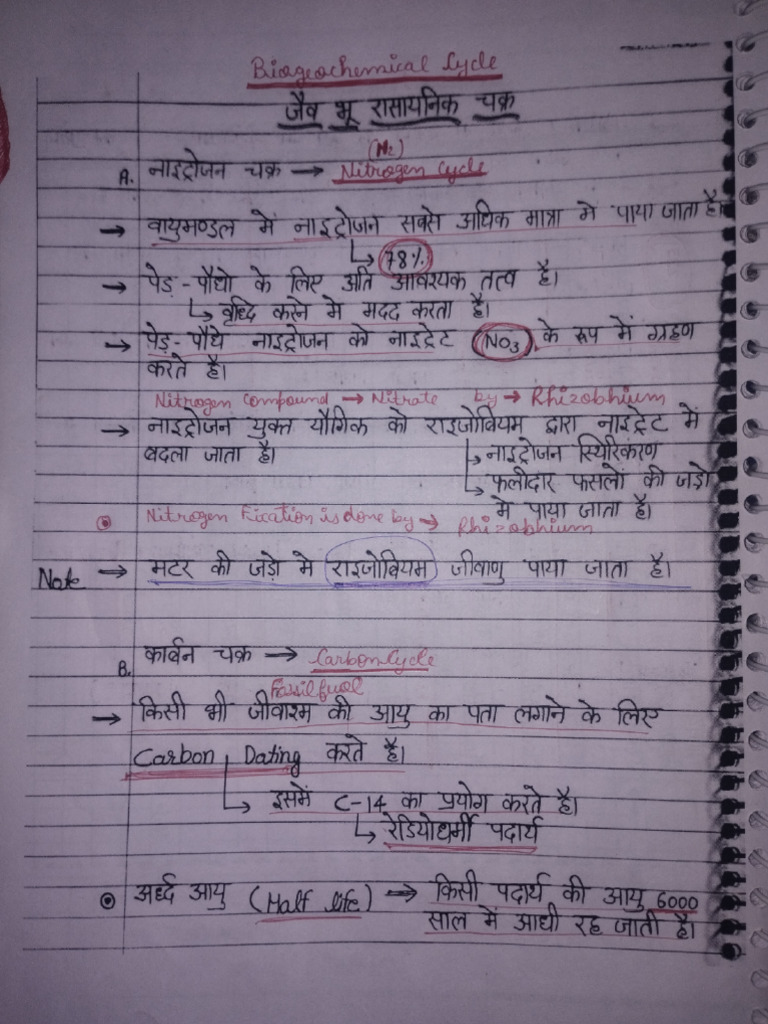 Biogeochemical Cycle
जैव भू रासायनिक चक्र
(N2)
A. नाइट्रोजन चक्र → Nitrogen Cycle
→ वायुमण्डल में नाइट्रोजन सबसे अधिक मात्रा मे पाया जाता है।
↳ 78%
→ पेड़-पौधो के लिए अति आवश्यक तत्व है।
↳ वृध्दि करने मे मदद करता है।
→ पेड़-पौधे नाइट्रोजन को नाइट्रेट (NO3) के रूप में ग्रहण
करते है।
Nitrogen compound → Nitrate by → Rhizobhium
→ नाइट्रोजन युक्त यौगिक को राइजोवियम द्वारा नाइट्रेट में
बदला जाता है।
↳ नाइट्रोजन स्थिरिकरण
↳ फलीदार फसलो की जड़ो
मे पाया जाता है।
Nitrogen Fixation is done by → Rhizobhium
Note → मटर की जड़ो मे राइजोवियम जीवाणु पाया जाता है।
B. कार्वन चक्र → Carbon Cycle
Fossil fual
→ किसी भी जीवाश्म की आयु का पता लगाने के लिए
Carbon Dating करते है।
↳ इसमें C-14 का प्रयोग करते है।
↳ रेडियोधर्मी पदार्थ
अर्ध्द आयु (Half life) → किसी पदार्थ की आयु 6000
साल में आधी रह जाती है।